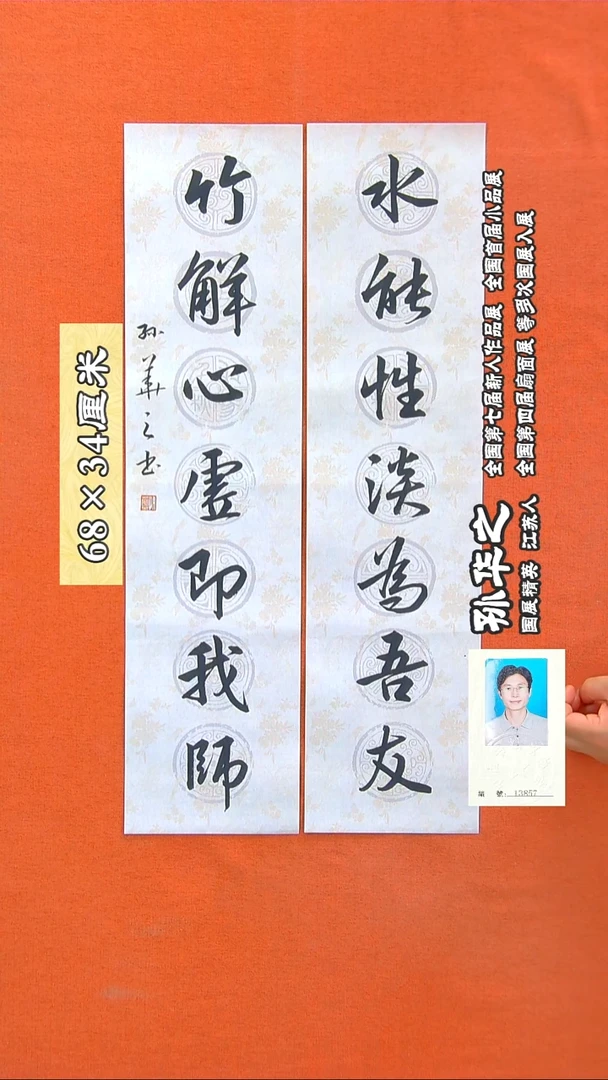 水能性淡為吾友
竹解心虛即我師
孙華之书
68×34厘米
孙华之
国展精英 江苏人
全国第七届新人作品展 全国首届小品展
全国第四届扇面展 等多次国展入展
編 號: 13857